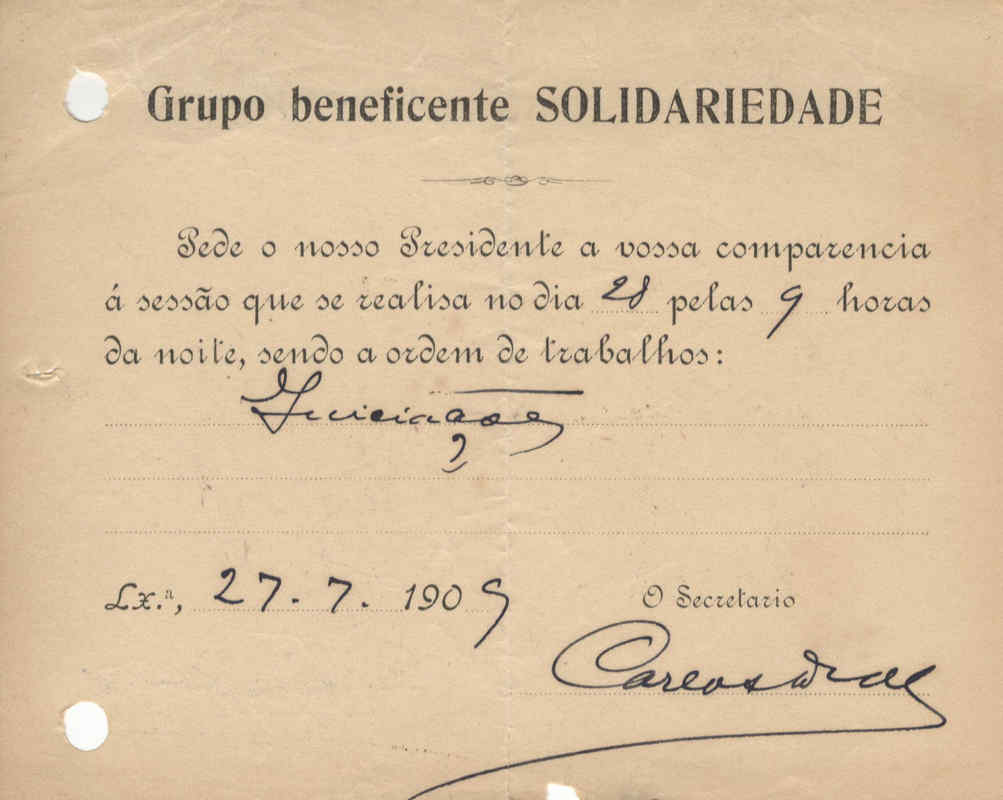 Grupo beneficente SOLIDARIEDADE
Pede o nosso Presidente a vossa comparencia
á sessão que se realisa no dia 28 pelas 9 horas
da noite, sendo a ordem de trabalhos:
Iniciações
Lx.ª, 27. 7. 1909
O Secretario
Carlos